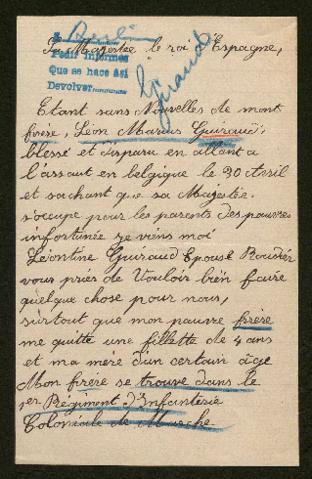 Sa Majestée le roi Espagne,
Pedir informes
Que se hace así
Devolver
Guiraud
Etant sans Nouvelles de mont
frère, Léon Marius Guiraud,
blessé et disparu en allant a
l'assaut en belgique le 30 Avril
et sachant que sa Majestée
s'occupe pour les parents des pauvres
infortunée je viens moi
Léontine Guiraud Epouse
vous priés de Vouloir bien faire
quelque chose pour nous,
surtout que mon pauvre frère
me quitte une fillette de 4 ans
et ma mère d'un certain âge
Mon frere se trouve dans le
1er Régiment d'Infanterie
Coloniale de Marche